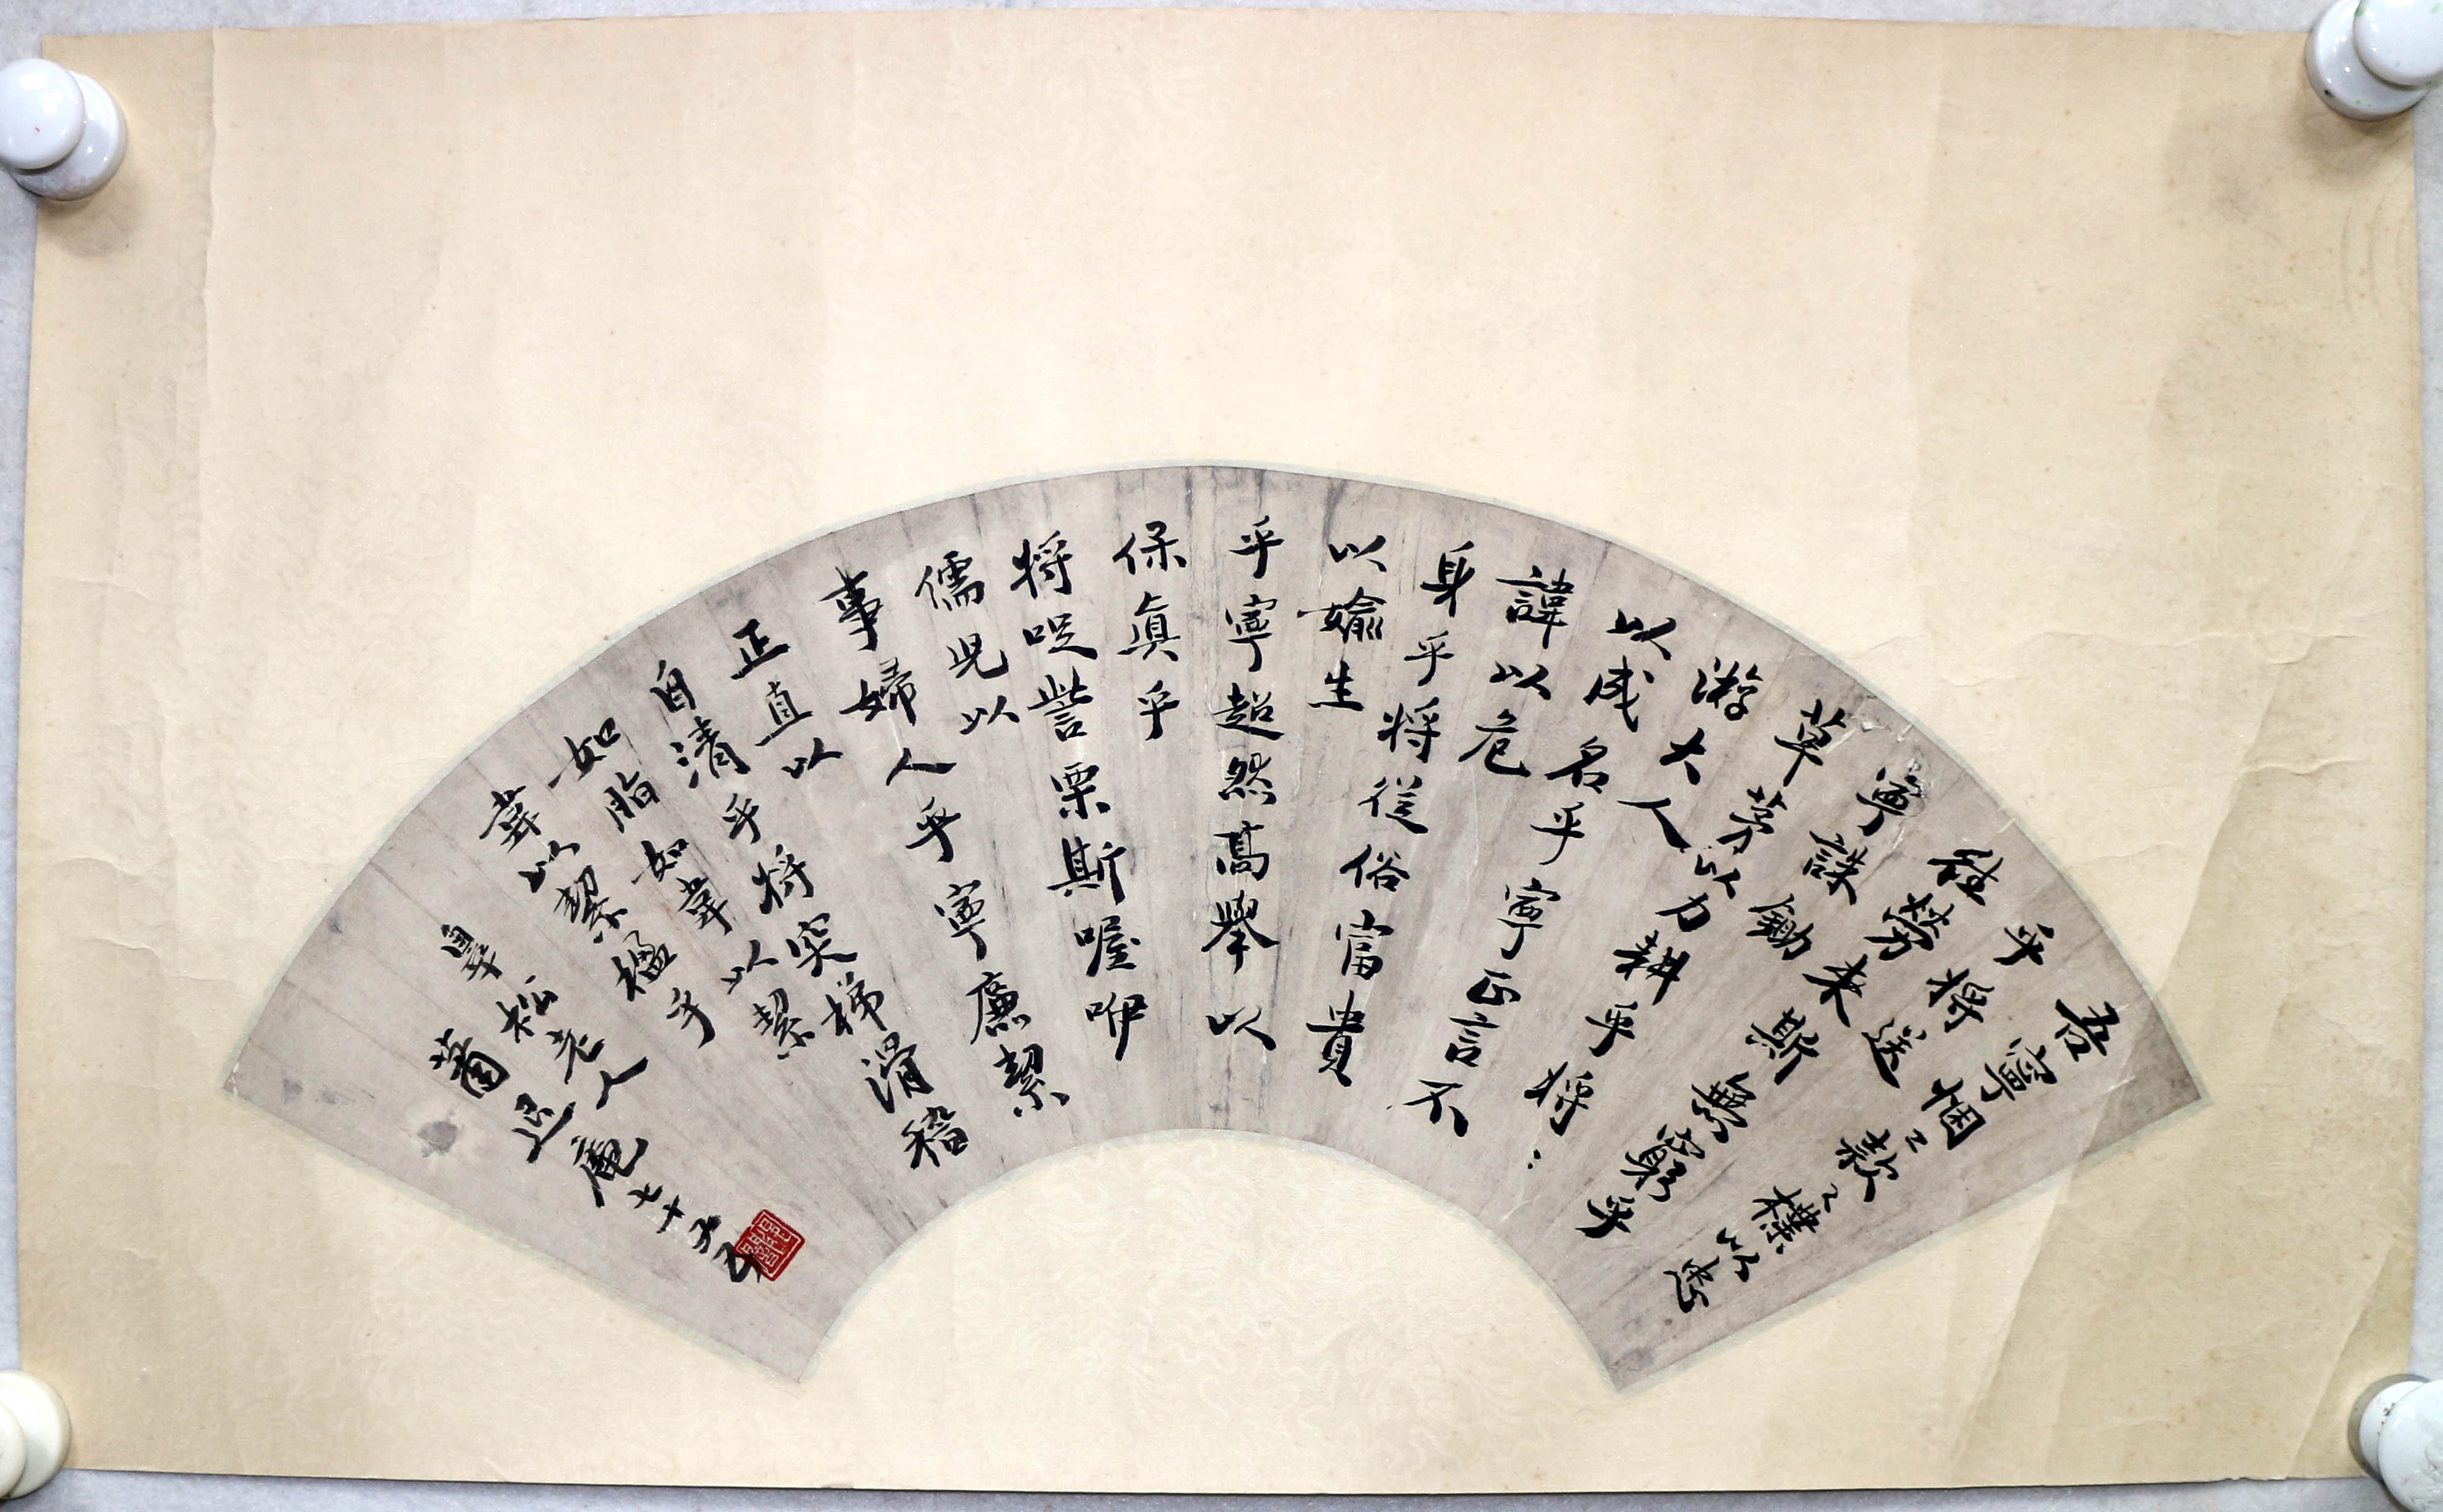 吾寧悃〻款〻樸以忠
乎將送
往勞來斯無窮乎
寧誅鋤
草茅以力耕乎將
游大人
以成名乎寧正言不
諱以危
身乎將從俗富貴
以媮生
乎寧超然高舉以
保真乎
將哫訾栗斯喔咿
儒兒以
事婦人乎寧廉絜
正直以
自清乎將突梯滑稽
如脂如韋以絜
韋以絜楹乎
皋松老人
蕭退庵七十五